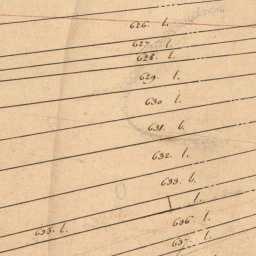 626. l.
627. l.
628. l.
629. l.
630 l.
631. l.
632. l.
633. l.
l.
635. l.
636. l.
637. l.